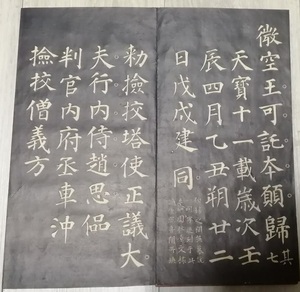 微空王可託夲願歸其七
天寶十一載歲次壬
辰四月乙丑朔廿二
日戊戌建同
勑撿挍塔使正議大
夫行內侍趙思偘
判官內府丞車沖
撿挍僧義方